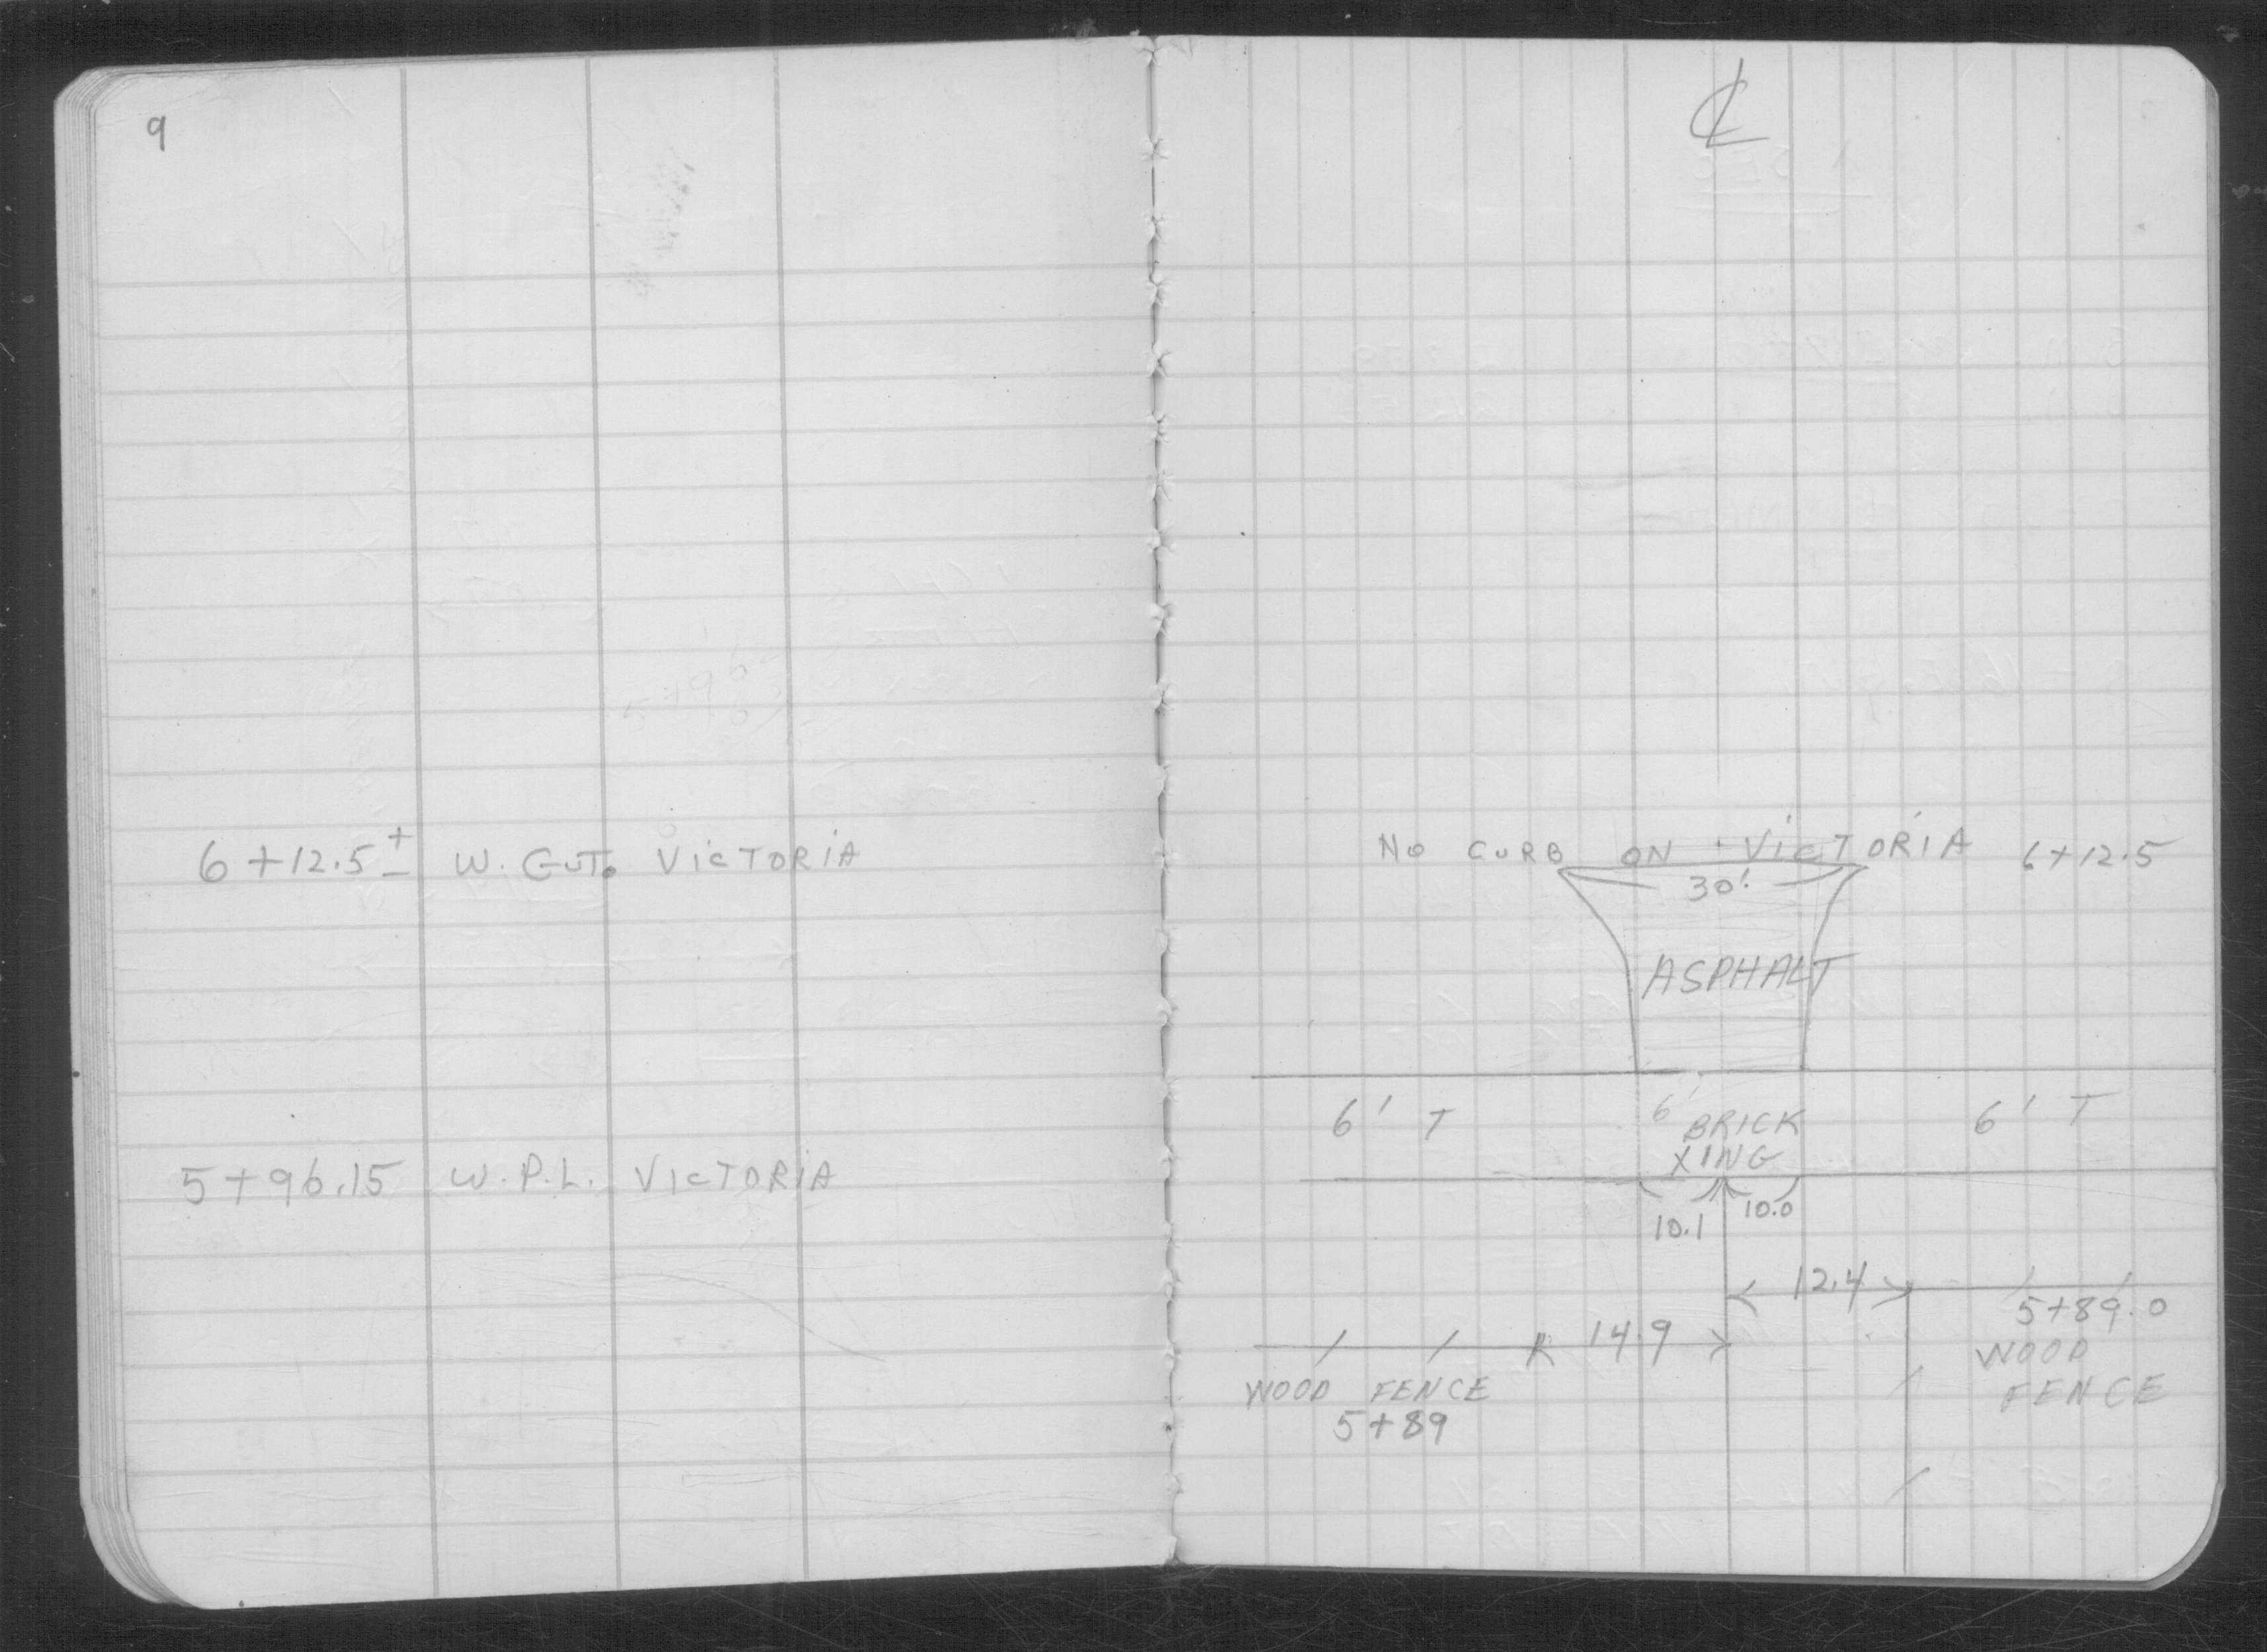 9
6+12.5± W. GUT. VICTORIA
5+96.15 W.P.L. VICTORIA
℄
NO CURB ON VICTORIA 6+12.5
30'
ASPHALT
6' T 6' BRICK XING 6' T
10.1 10.0
12.4
5+89.0
14.9
WOOD FENCE
WOOD FENCE
5+89